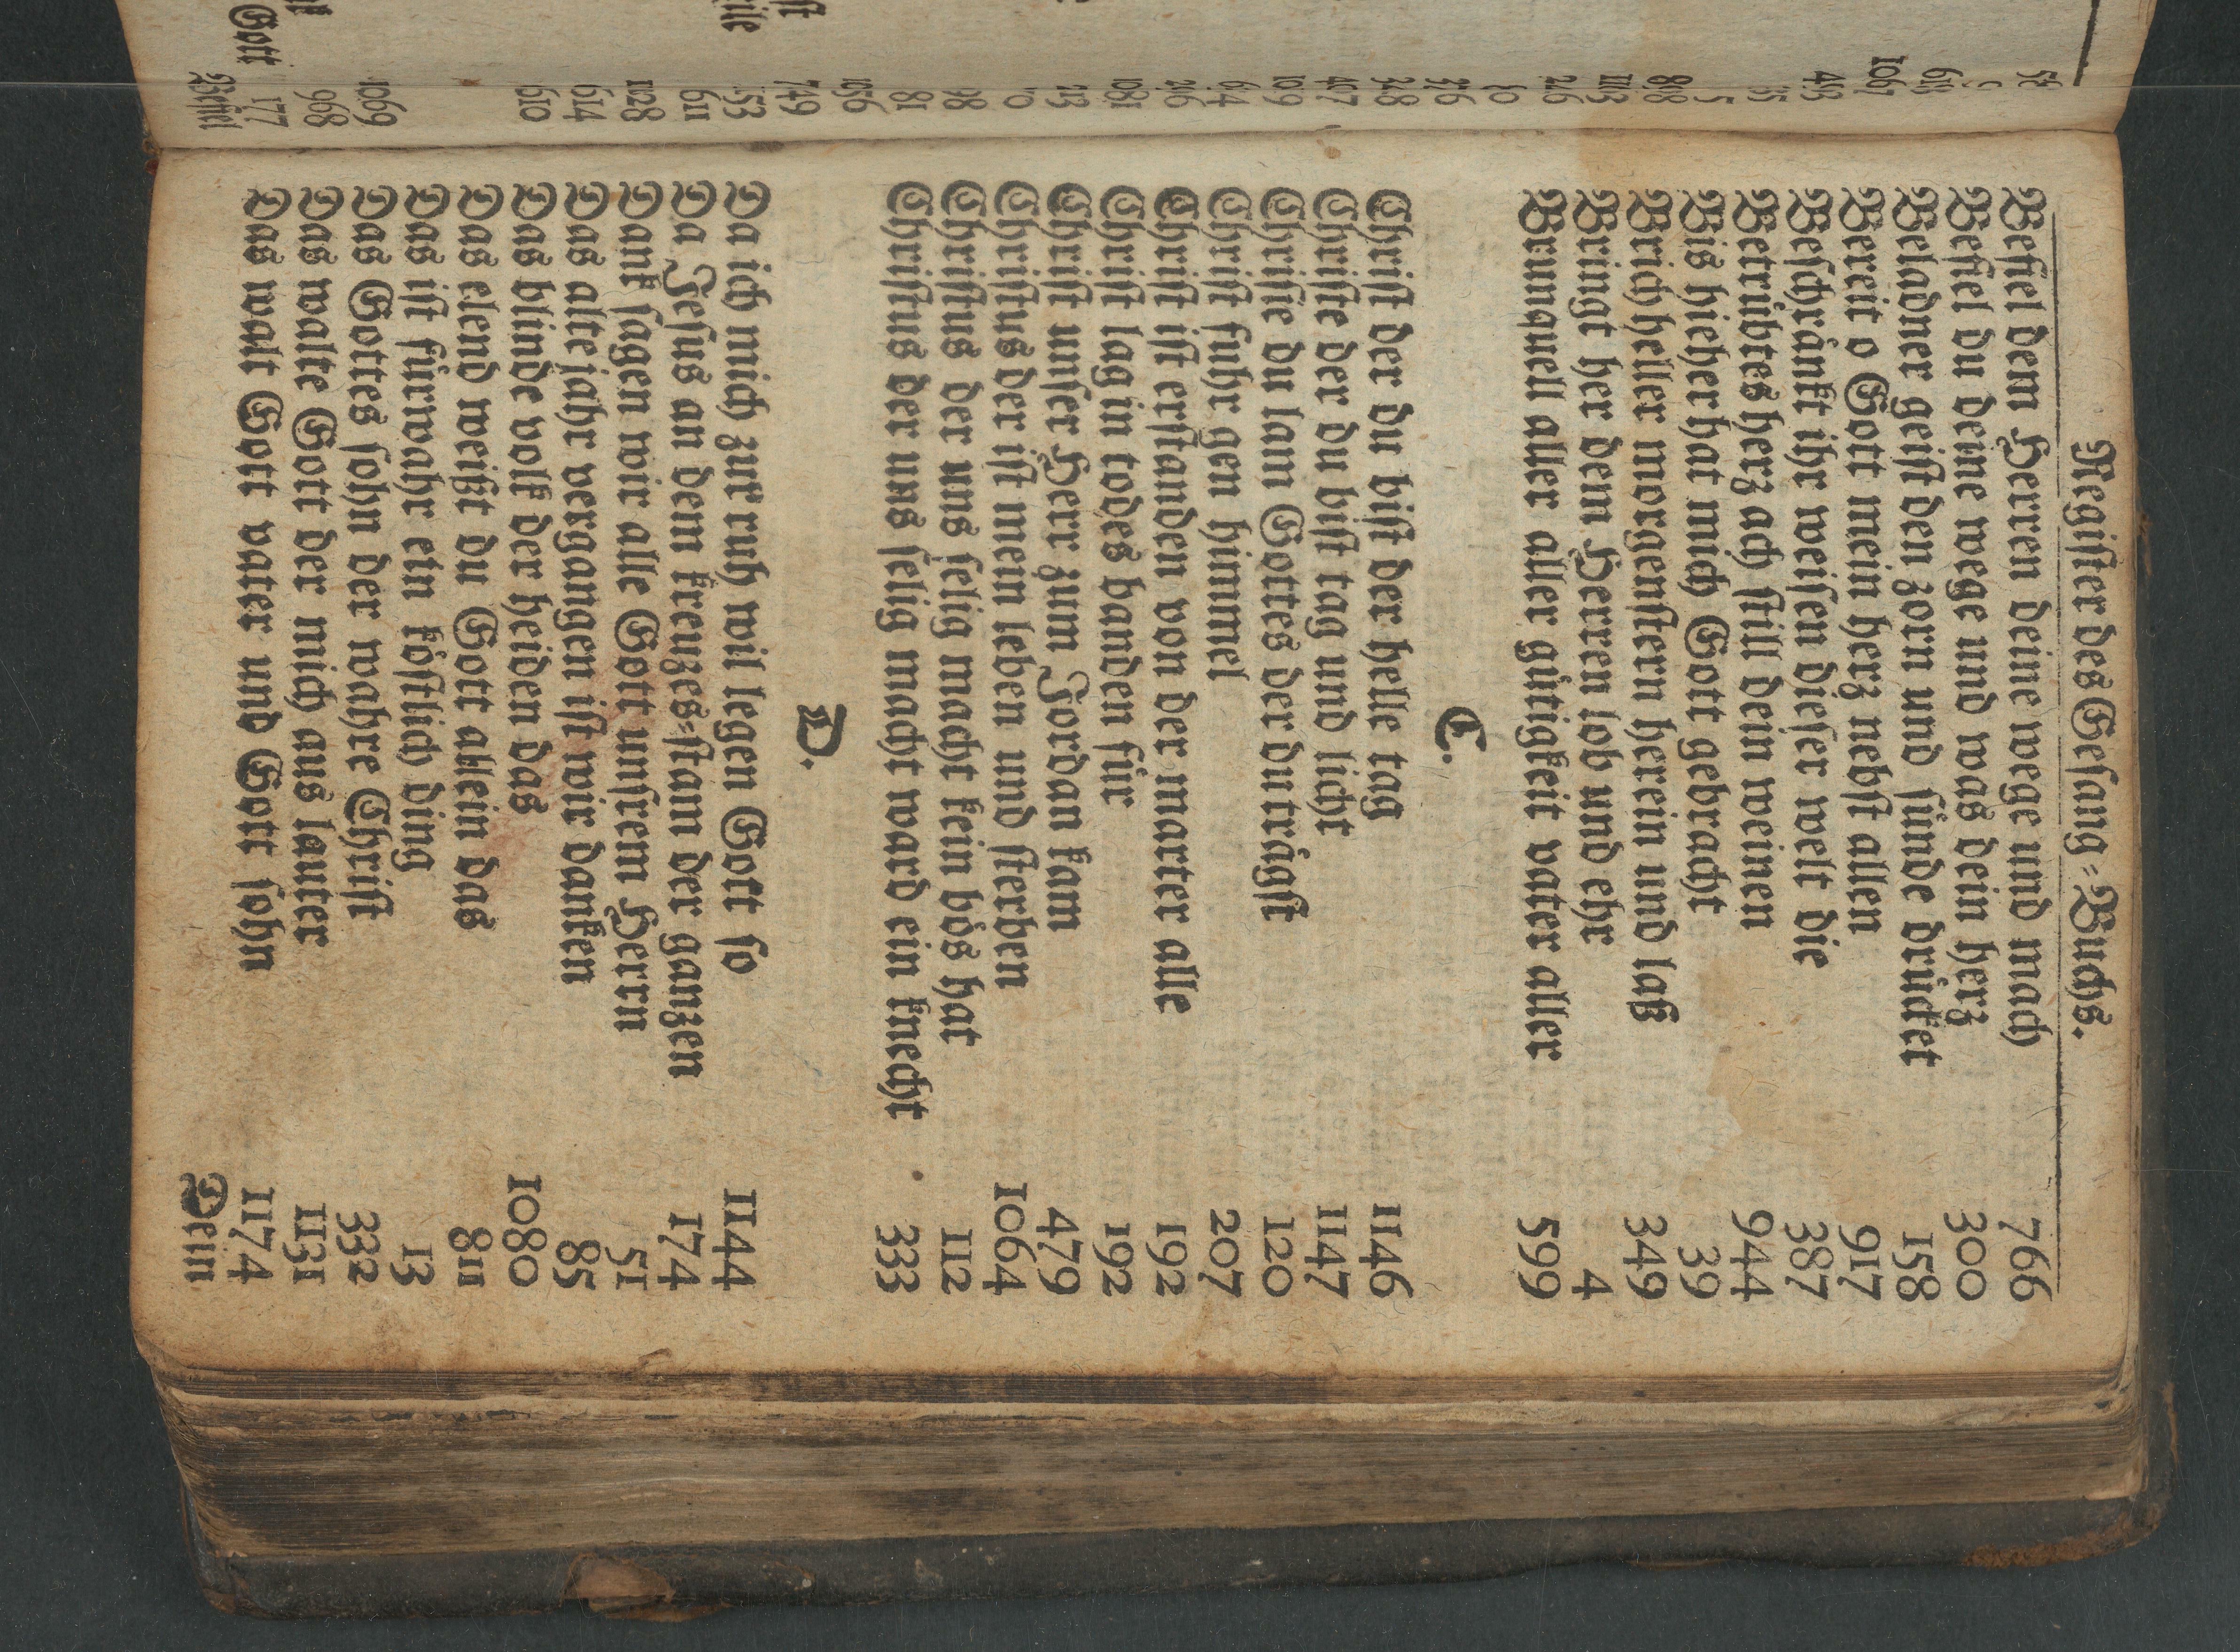 Register des Gesang-Buchs.
Befiel dem Herren deine wege und mach 766
Befiel du deine wege und was dein herz 300
Beladner geist den zorn und sünde drücket 158
Bereit o Gott mein herz nebst allen 917
Beschränkt ihr weisen dieser welt die 387
Betrübtes herz ach still dein weinen 944
Bis hieher hat mich Gott gebracht 39
Brich heller morgenstern herein und laß 349
Bringt her dem Herren lob und ehr 4
Brunquell aller aller gütigkeit vater aller 599
C.
Christ der du bist der helle tag 1146
Christe der du bist tag und licht 1147
Christe du lam Gottes der du trägst 120
Christ fuhr gen himmel 207
Christ ist erstanden von der marter alle 192
Christ lag in todes banden für 192
Christ unser Herr zum Jordan kam 479
Christus der ist mein leben und sterben 1064
Christus der uns selig macht kein bös hat 112
Christus der uns selig macht ward ein knecht 333
D.
Da ich mich zur ruh wil legen Gott so 1144
Da Jesus an dem kreuzes-stam der ganzen 174
Dank sagen wir alle Gott unsrem Herrn 51
Das alte jahr vergangen ist wir danken 85
Das blinde volk der heiden das 1080
Das elend weißt du Gott allein das 811
Das ist fürwahr ein köstlich ding 13
Das Gottes sohn der wahre Christ 332
Das walte Gott der mich aus lauter 1131
Das walt Gott vater und Gott sohn 1174
Dein